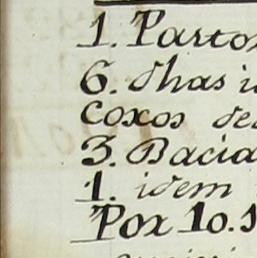 1. Parton
6. dhas i
coxos de
3. Bacia
1. idem
Por 10.